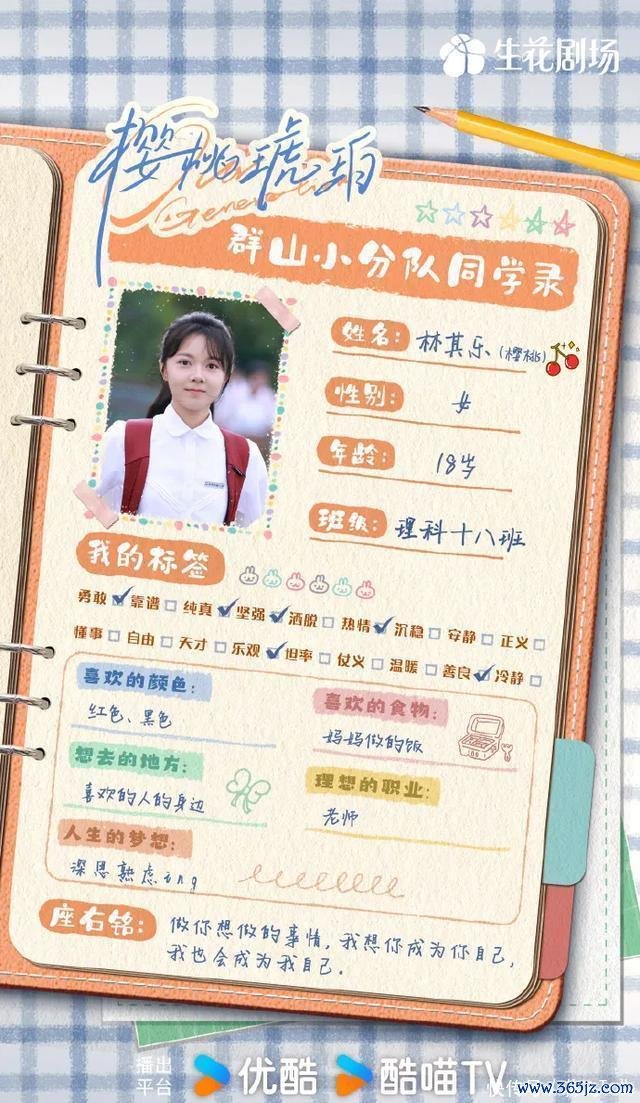 生花剧场
樱桃琥珀
Generation
群山小分队同学录
姓名：林其乐（樱桃）
性别：女
年龄：18岁
班级：理科十八班
我的标签
勇敢 靠谱 纯真 坚强 洒脱 热情 沉稳 安静 正义
懂事 自由 天才 乐观 坦率 仗义 温暖 善良 冷静
喜欢的颜色：
红色、黑色
喜欢的食物：
妈妈做的饭
想去的地方：
喜欢的人的身边
理想的职业：
老师
人生的梦想：
深思熟虑ing
座右铭：做你想做的事情，我想你成为你自己，
我也会成为我自己．
播出
平台
优酷 酷喵TV
www.365jz.com